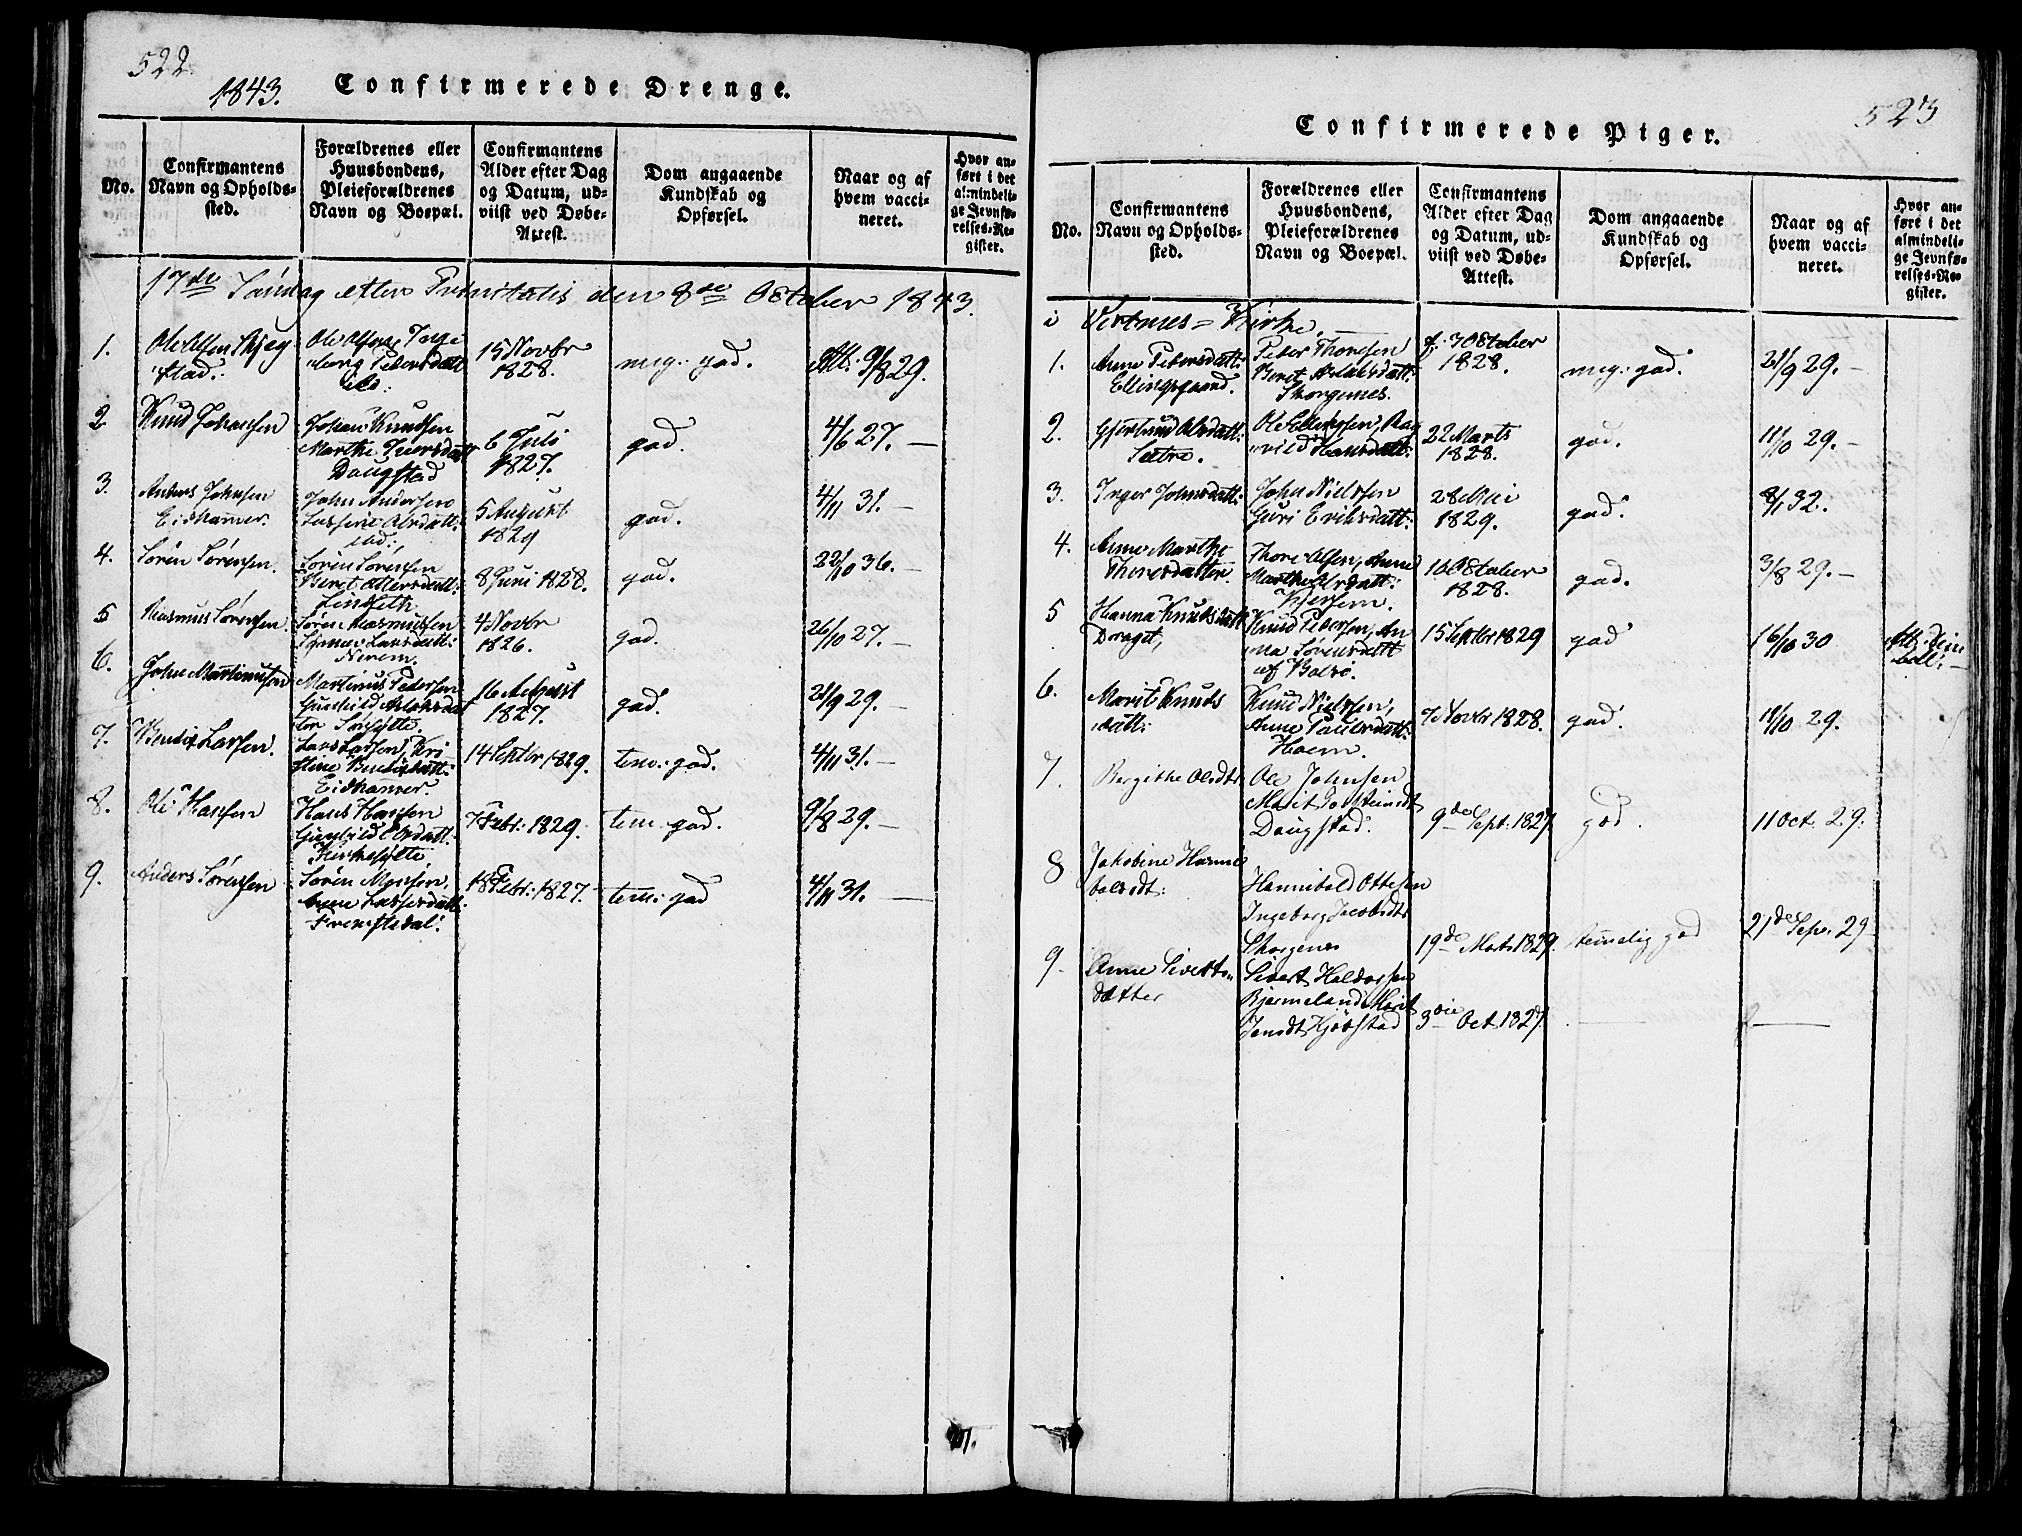 522.
1843.
Confirmerede Drenge.
No.
Confirmantens
Navn og Opholds-
sted.
Forældrenes eller
Huusbondens,
Pleieforældrenes
Navn og Boepæl.
Confirmantens
Alder efter Dag
og Datum, ud-
viist ved Døbe-
Attest.
Dom angaaende
Kundskab og
Opførsel.
Naar og af
hvem vacci-
neret.
Hvor an-
ført i det
almindeli-
ge Jevnfø-
relses-Re-
gister.
17de Søndag efter Trinitatis den 8de October 1843.
1.
Ole Olsen
stad.
Ole Olsen, Inge
borg Pedersdatt
ibd:
15 Novbr
1828.
meg: god.
Att: 9/8 29.
2
Knud Johansen
Johan Knudsen
Marthe Iversdatt
Daugstad
6 Juli
1827.
god.
27. –
3.
Anders Johnsen
Eidhamer.
John Andersen
Olsdatt:
ibd:
5 August
1829
god.
4/11 31. –
4.
Søren Sørensen.
Søren Sørensen
Beret Ottersdatt:
Lindseth
8 Juni 1828.
god.
22/10 36. –
5
Rasmus Sørensen.
Søren Rasmussen
Larsdatt:
Nerem.
4 Novbr
1826.
god.
26/10 27. –
6.
John Martinusen
Martinus Pedersen
Gunhild Aslaksdat
ter Sørsylte.
16 August
1827.
god.
21/9 29. –
7.
Bendix Larsen.
Lars Larsen, Kri
stine Bendixdatt:
Eidhamer
14 Septbr 1829.
tem: god.
4/11 31. –
8.
Ole Hansen
Hans Hansen
Gunhild Olsdatt:
Kirkesylte
7 Febr: 1829.
tem: god.
9/8 29. –
9.
Anders Sørensen
Søren Monsen,
Anne Lassesdatt:
Fremstedal:
18 Febr: 1827.
tem: god
4/11 31. –
523
Confirmerede Piger.
No.
Confirmantens
Navn og Opholds-
sted.
Forældrenes eller
Huusbondens,
Pleieforældrenes
Navn og Boepæl.
Confirmantens
Alder efter Dag
og Datum, ud-
viist ved Døbe-
Attest.
Dom angaaende
Kundskab og
Opførsel.
Naar og af
hvem vacci-
neret.
Hvor an-
ført i det
almindeli-
ge Jevnfø-
relses-Re-
gister.
i Vestnes = Kirke.
1.
Anne Pedersdatt:
Ellingsgaard.
Peder Thoresen
Beret Aslaksdatt:
Skorgenes.
f. 7 October
1828.
meg: god.
21/9 29. –
2.
Gjertrud Olsdatt:
Sætre.
Ole Ellingsen, Rag
nild Hansdatt:
22 Marts
1828.
god.
11/10 29. –
3.
Inger Johnsdatt:
John Nielsen
Guri Eriksdatt:
28 Mai
1829.
god.
8/1 32.
4.
Anne Marthe
Thoresdatter
Thore Olsen, Anne
Marthe Olsdatt:
Kjersem.
16 October
1828.
god.
3/8 29. –
5
Hanna Knudsdatt
Draget,
Knud Pedersen, An
na Sørensdatt
af Bolsø.
15 Septbr 1829
god
16/10 30
6.
Marit Knuds
datt:
Knud Nielsen,
Anne Paulsdatt:
Hoem.
7 Novbr 1828.
god.
11/10 29.
7.
Bergithe Olsdtr
Ole Johnsen
Marit Torsteinsdt
Daugstad.
9de Sept. 1827
god.
11 Oct. 29.
8
Jakobine Hanni
balsdt:
Hannibald Ottesen
Ingeborg Jacobsdtr
Skorgenes
19de Marts 1829.
temelig god
21de Sep. 29
9.
Anne Sivertsn
datter
Sivert Haldorsen
Bjermeland, Marit
Jensdt Kjøbstad
3die Oct. 1827.